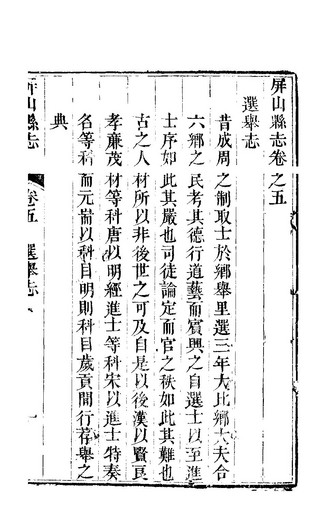 屏山縣志卷之五
選舉志
昔成周之制取士於鄉舉里選三年大比鄉大夫合
六鄉之民考其德行道藝而賓興之自選士以至進
士序如此其嚴也司徒論定而官之秩如此其難也
古之人材所以非後世之可及自是以後漢以賢良
孝廉茂材等科唐以明經進士等科宋以進士特奏
名等科而元耑以科目明則科目歲貢間行荐舉之
典
屏山縣志
卷五
選舉志